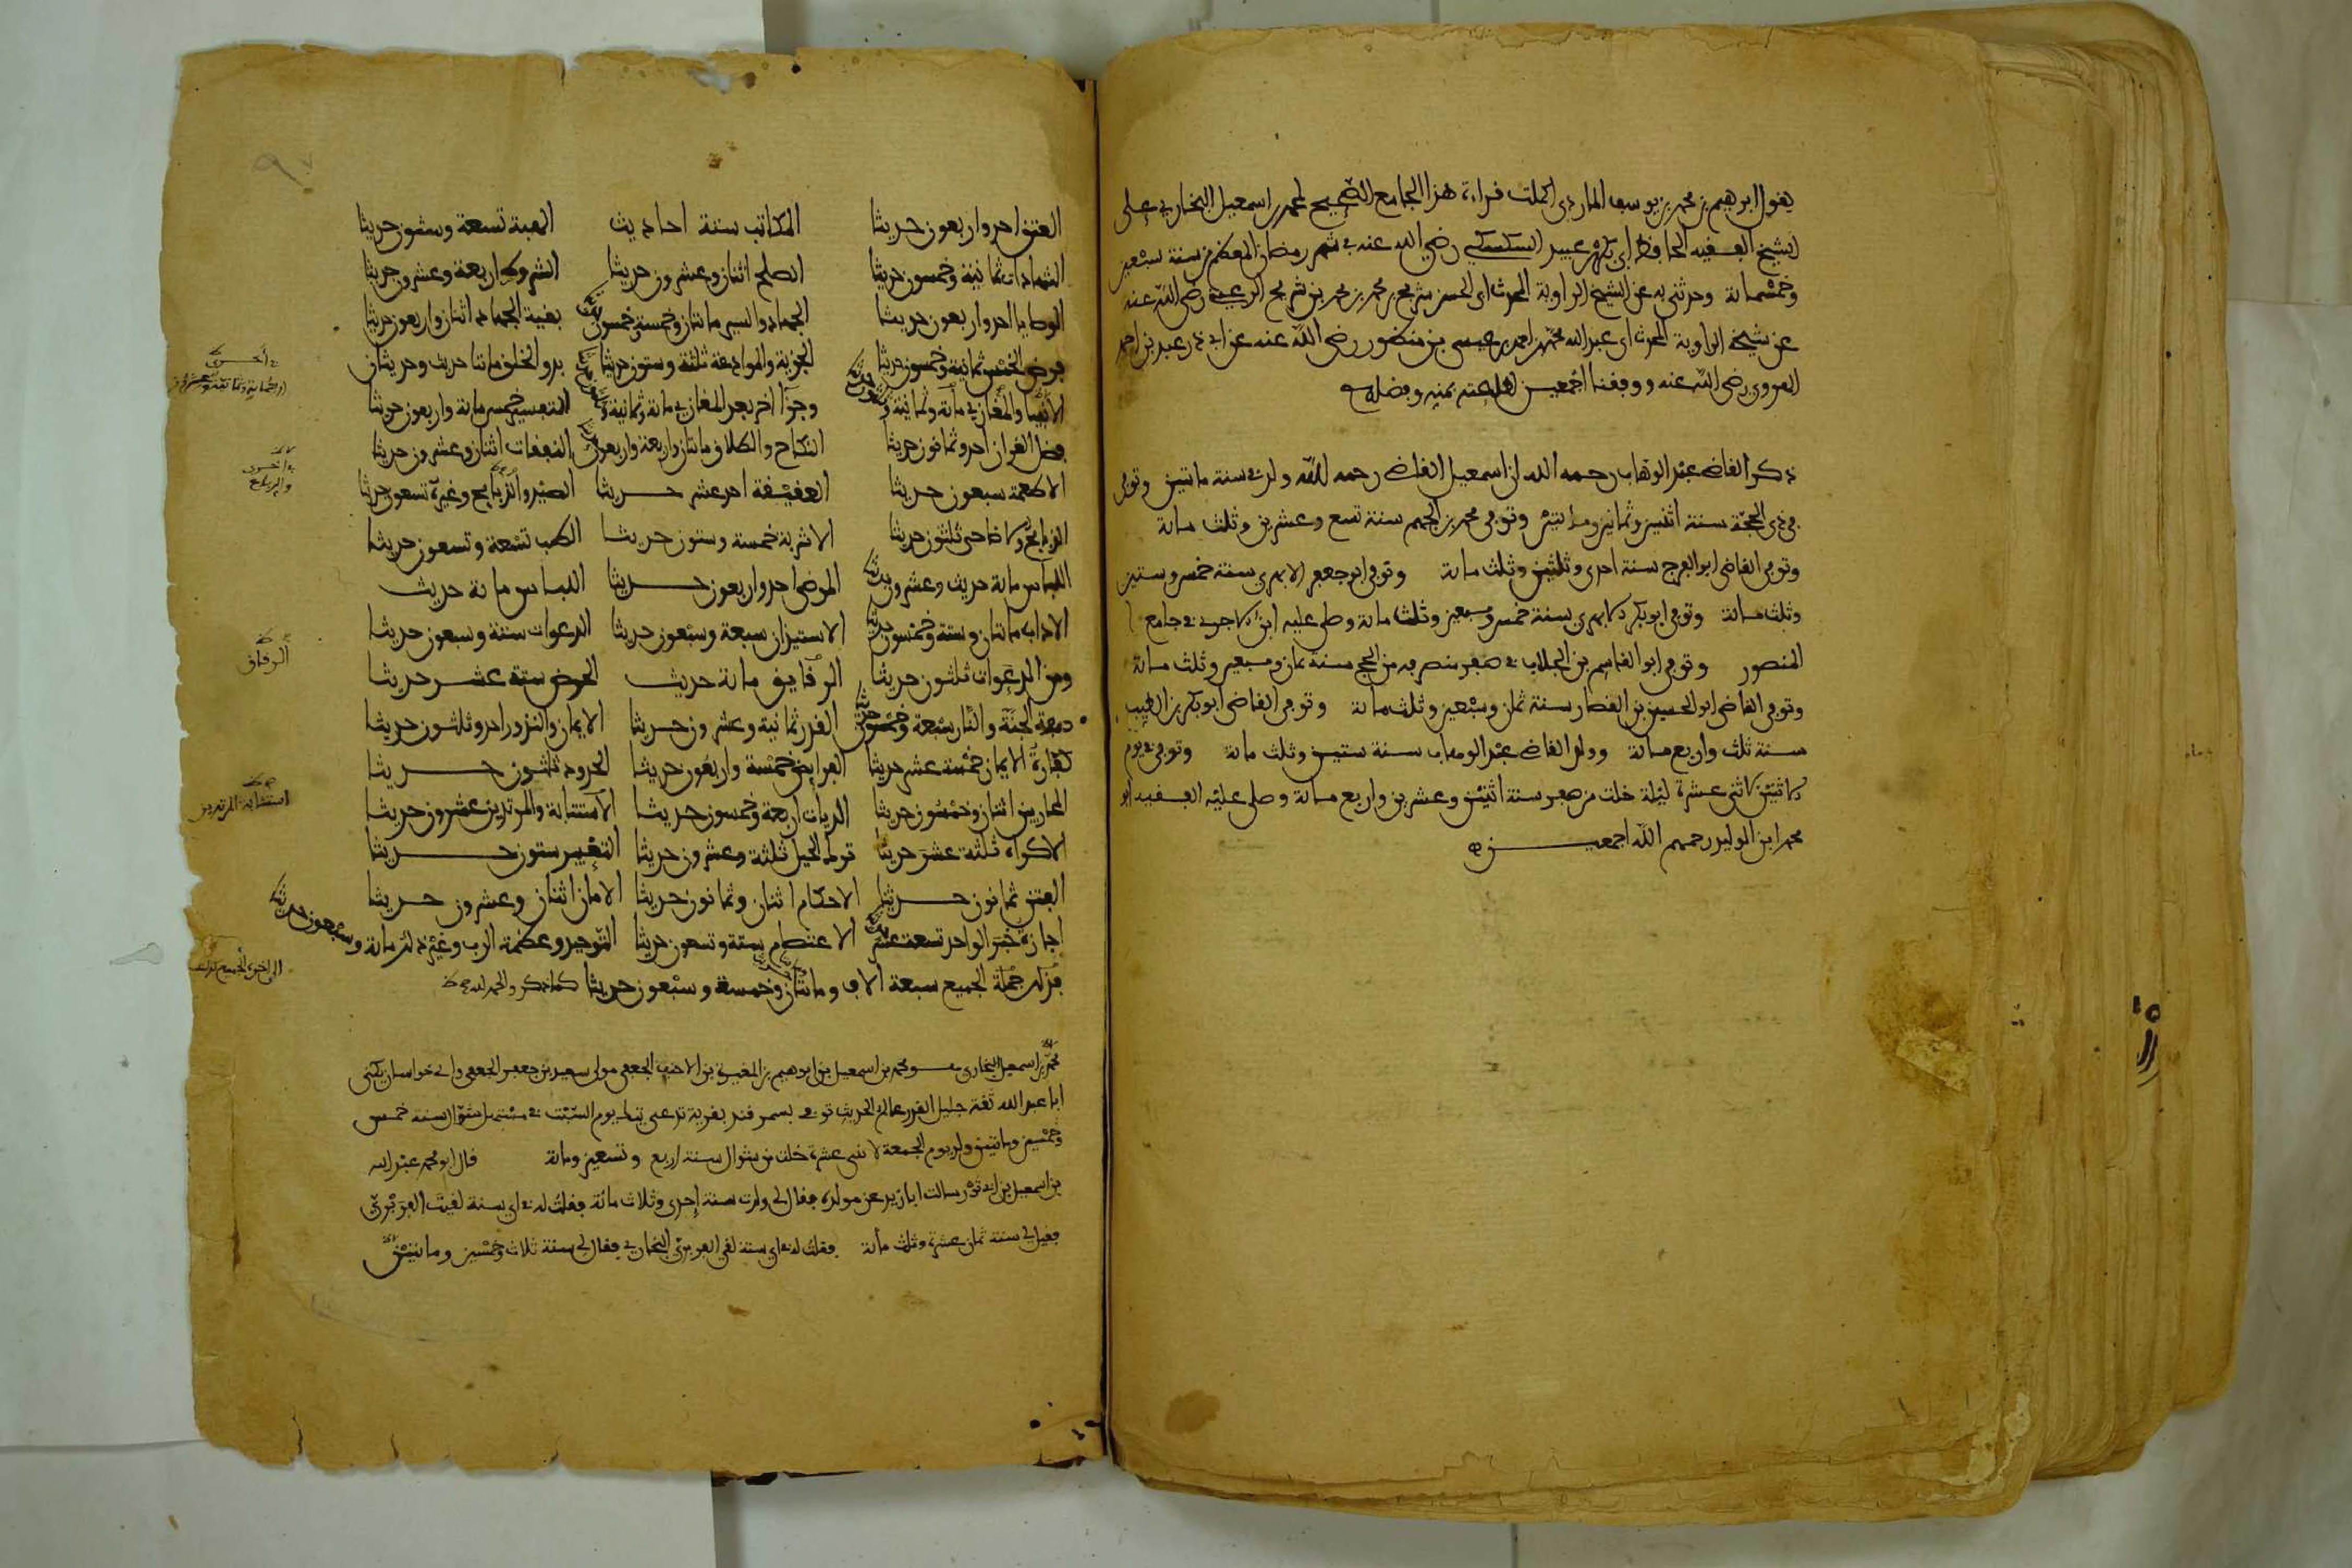 يقول ابرهيم بن محمد بن يوسف اكملت قراءة هذا الجامع الصحيح لمحمد بن اسمعيل البخاري على
الشيخ الفقيه الحافظ ابي بكر بن عبيد السكسكي رضي الله عنه في شهر رمضان المعظم من سنة سبعين
وخمسمائة وحدثني به عن الشيخ الراوية المحدث ابي الحسن شريح بن محمد بن شريح الرعيني رضي الله عنه
عن شيخه الراوية المحدث ابي عبد الله محمد بن احمد بن عيسى بن منظور رضي الله عنه عن ابي ذر عبد بن احمد
الهروي رضي الله عنه ووفقنا اجمعين لطاعته بمنه وفضله
ذكر القاضي عبد الوهاب رحمه الله ان اسمعيل القاضي رحمه الله ولد في سنة مائتين وتوفي
في ذي الحجة سنة اثنين وثمانين ومائتين وتوفي محمد بن الجهم سنة تسع وعشرين وثلث مائة
وتوفي القاضي ابو الفرج سنة احدى وثلثين وثلث مائة وتوفي ابو جعفر الابهري سنة خمس وستين
وثلث مائة وتوفي ابو بكر الابهري سنة خمس وسبعين وثلث مائة وصلى عليه ابن في جامع
المنصور وتوفي ابو القاسم بن الجلاب في صفر منصرفه من الحج سنة ثمان وسبعين وثلث مائة
وتوفي القاضي ابو الحسين بن القصار سنة ثمان وسبعين وثلث مائة وتوفي القاضي ابو بكر بن الطيب
سنة ثلث واربع مائة وولد القاضي عبد الوهاب سنة ستين وثلث مائة وتوفي في يوم
الاثنين لاثنى عشرة ليلة خلت من صفر سنة اثنين وعشرين واربع مائة وصلى عليه الفقيه ابو
محمد ابن الوليد رحمهم الله اجمعين
العتق احد واربعون حديثا المكاتب ستة احاديث الهبة تسعة وستون حديثا
الشهادات ثمانية وخمسون حديثا الصلح اثنان وعشرون حديثا الشروط اربعة وعشرون حديثا
الوصايا احد واربعون حديثا الجهاد والسير مائتان وخمسة وخمسون حديثا بقية الجهاد اثنان واربعون حديثا
فرض الخمس ثمانية وخمسون حديثا الجزية والموادعة ثلثة وستون حديثا بدو الخلق مائتا حديث وحديثان
الانبيا والمغازي مائة وثمانية وجزءا اخر بعد المغازي مائة وثمانية التفسير خمس مائة واربعون حديثا
فضل القران احد وثمانون حديثا النكاح والطلاق مائتان واربعة واربعون حديثا النفقات اثنان وعشرون حديثا
الاطعمة سبعون حديثا العقيقة احد عشر حديثا الصيد والذبايح وغيره تسعون حديثا
والاضاحي ثلثون حديثا الاشربة خمسة وستون حديثا الطب تسعة وتسعون حديثا
اللباس مائة حديث وعشرون حديثا المرضى احد واربعون حديثا اللباس مائة حديث
الاداب مائتان وستة وخمسون حديثا الاستيذان سبعة وسبعون حديثا الدعوات ستة وسبعون حديثا
ومن الدعوات ثلثون حديثا الرقايق مائة حديث الحوض ستة عشر حديثا
صفة الجنة والنار سبعة وخمسون حديثا القدر ثمانية وعشرون حديثا الايمان والنذور احد وثلثون حديثا
كفارة الايمان خمسة عشر حديثا الفرايض خمسة واربعون حديثا الحدود ثلثون حديثا
المحاربين اثنان وخمسون حديثا الديات اربعة وخمسون حديثا الاستتابة والمرتدين عشرون حديثا
الاكراه ثلثة عشر حديثا ترك الحيل ثلثة وعشرون حديثا التعبير ستون حديثا
الفتن ثمانون حديثا الاحكام اثنان وثمانون حديثا الامان اثنان وعشرون حديثا
اجازة خبر الواحد تسعة عشر حديثا الاعتصام ستة وتسعون حديثا التوحيد وعظمة الرب وغير ذلك مائة وسبعون حديثا
فذلك جملة الجميع سبعة الاف ومائتان وخمسة وسبعون حديثا كما ذكر والحمد لله
الرقاق
استتابة المرتدين
محمد بن اسمعيل البخاري هو محمد بن اسمعيل بن ابرهيم بن المغيرة بن الاحنف الجعفي مولى سعيد بن جعفر الجعفي والي خراسان يكنى
ابا عبد الله ثقة جليل القدر عالم الحديث توفي بسمرقند بقرية تدعى يوم السبت في مستهل شوال سنة خمس
وخمسين ومائتين ولد يوم الجمعة لاثنى عشرة خلت من شوال سنة اربع وتسعين ومائة قال ابو محمد عبد الله
بن اسمعيل بن سالت ابا زيد عن مولده فقال لي ولدت سنة احدى وثلاث مائة فقلت له في اي سنة لقيت الفربري
فقيل لي سنة ثمان عشرة وثلث مائة فقلت له في اي سنة لقي الفربري البخاري فقال لي سنة ثلاث وخمسين ومائتين